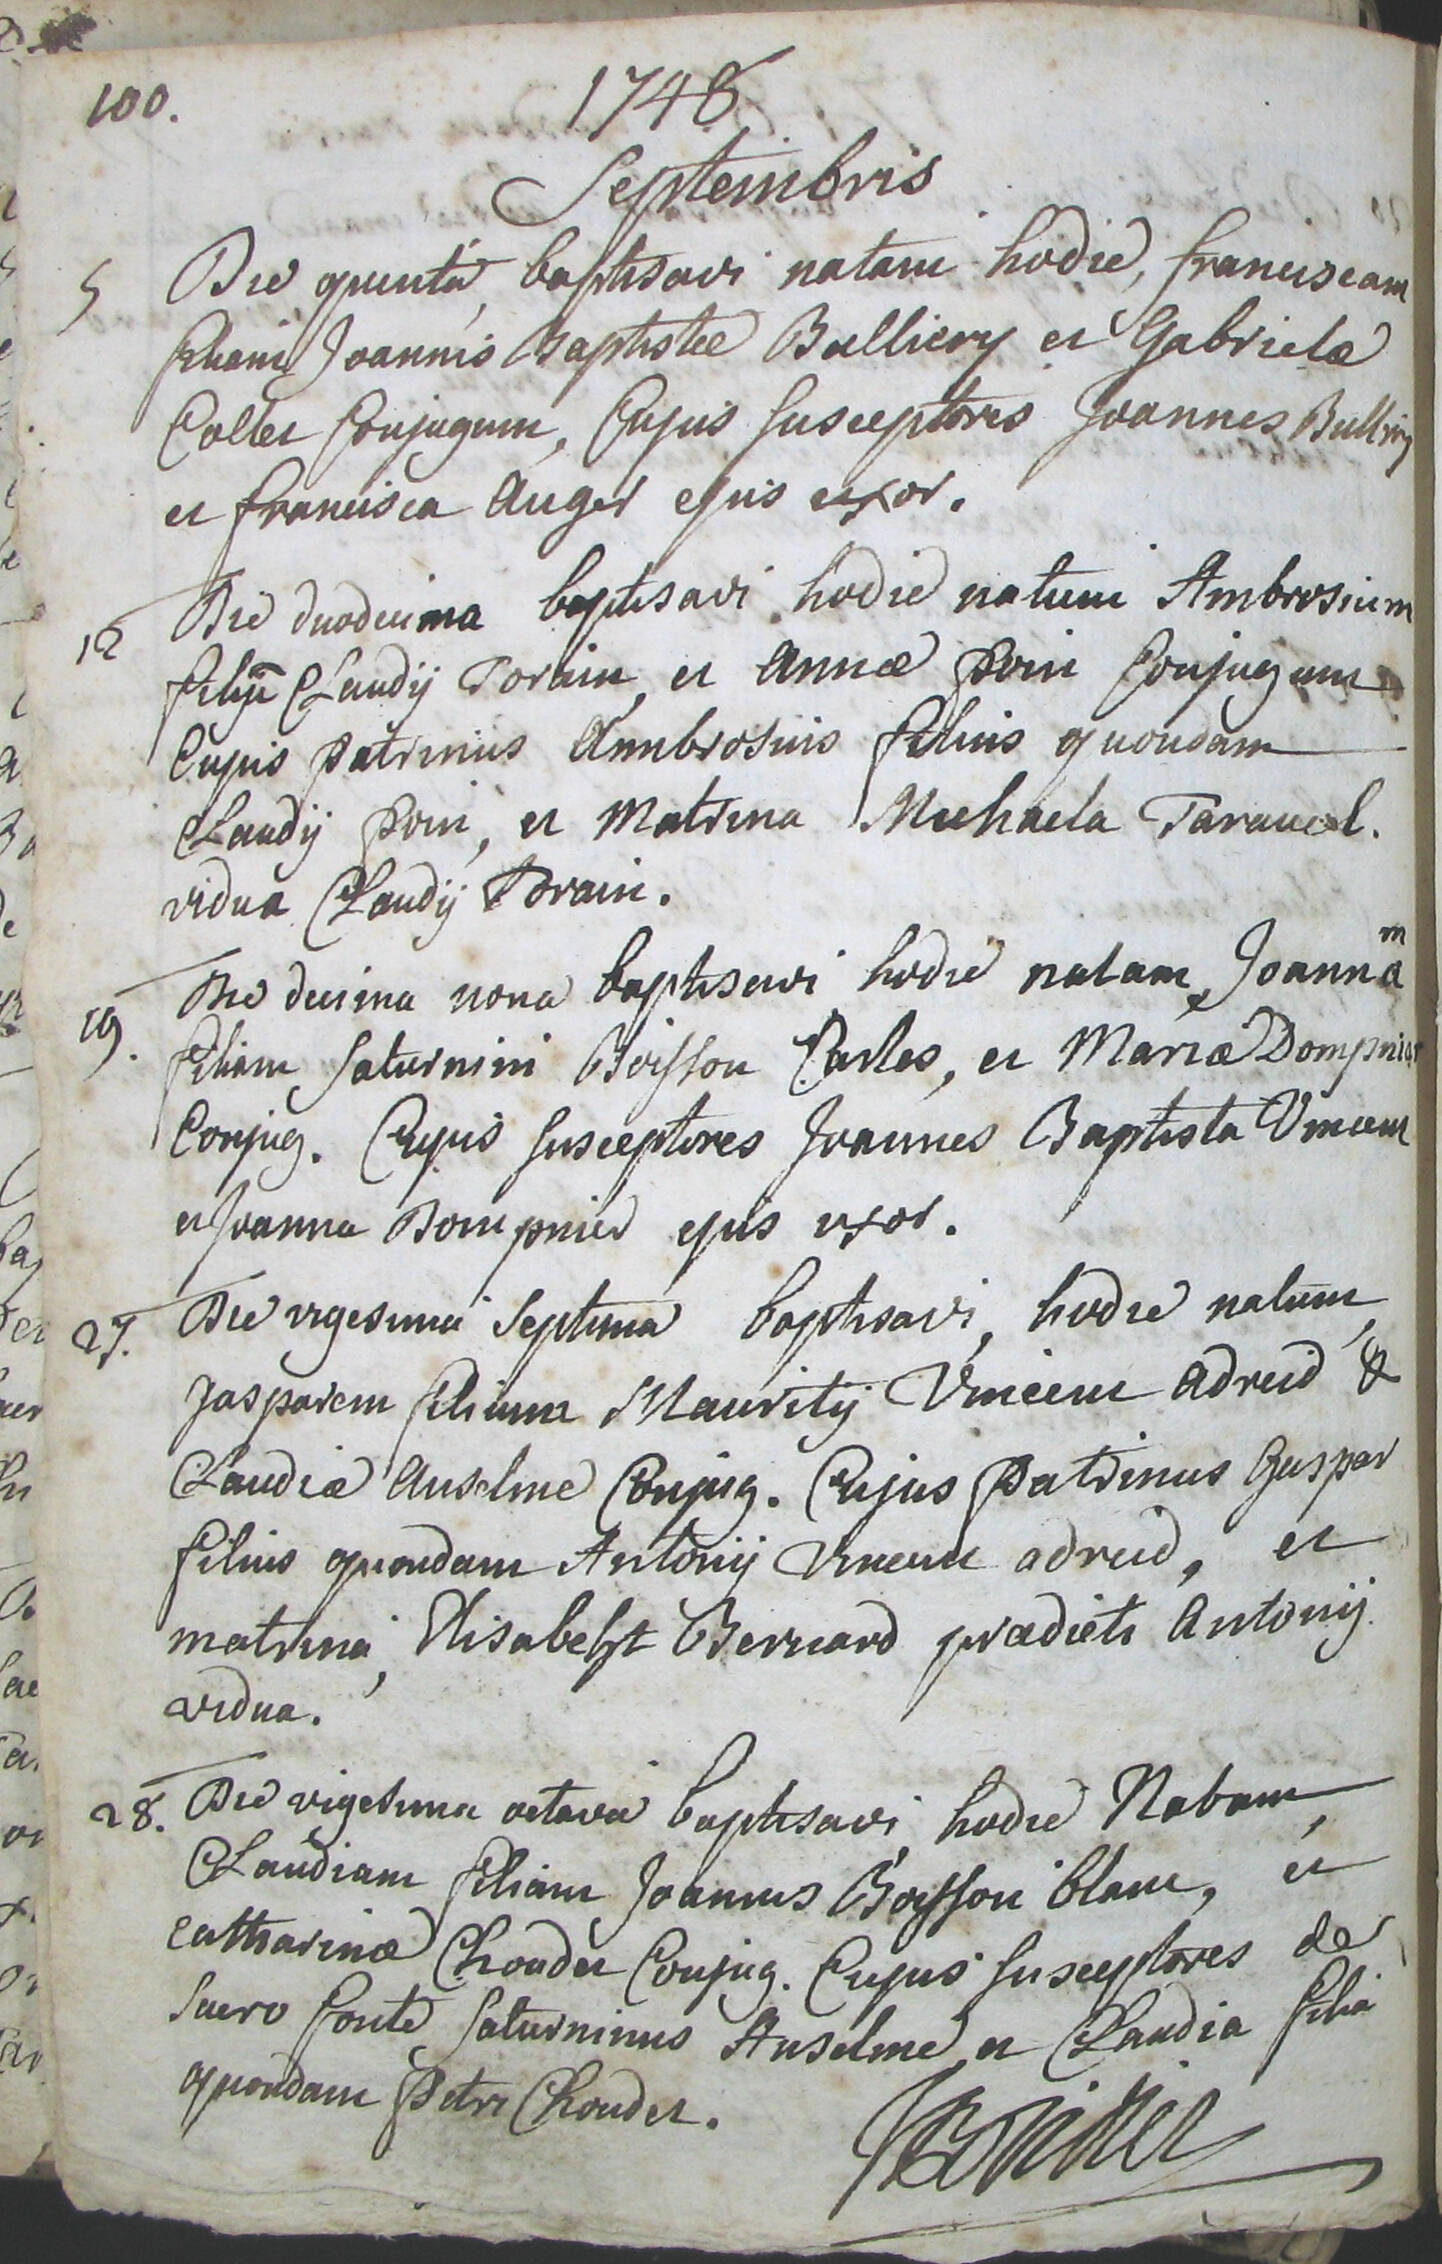 100.
1748
Septembris
5 Die quinta, baptisavi natam hodie, franciscam
filiam Joannis Baptistæ Bulliery et Gabrielæ
Collet Conjugum, Cujus Susceptores Joannes
et francisca Auger ejus uxor.
12 Die duodecima baptisavi hodie natum Ambrosium
filiū Claudij Torain, et Annæ Poin Conjugum
Cujus Patrinus Ambrosius filius quondam
Claudij Poin, et Matrina Michaela
vidua Claudij Torain.
19. Die decima nona baptisavi hodie natam, Joannam
filiam Saturnini Boisson Carles, et Mariæ Dompnier
Conjug. Cujus Susceptores Joannes Baptista Vincent
et Joanna Dompnier ejus uxor.
27. Die vigesima Septima baptisavi, hodie natum,
Gasparem filium Mauritij Vincent adreid &
Claudiæ Anselme Conjug. Cujus Patrinus Gaspar
filius quondam Antonij Vincent adreid, et
matrina, Elisabeht Bernard prædicti Antonij
vidua.
28. Die vigesima octava baptisavi hodie Natam,
Claudiam filiam Joannis Boisson blanc, et
Catharinæ Choudet Conjug. Cujus Susceptores de
Sacro fonte Saturninus Anselme et Claudia filia
quondam Petri Choudet.